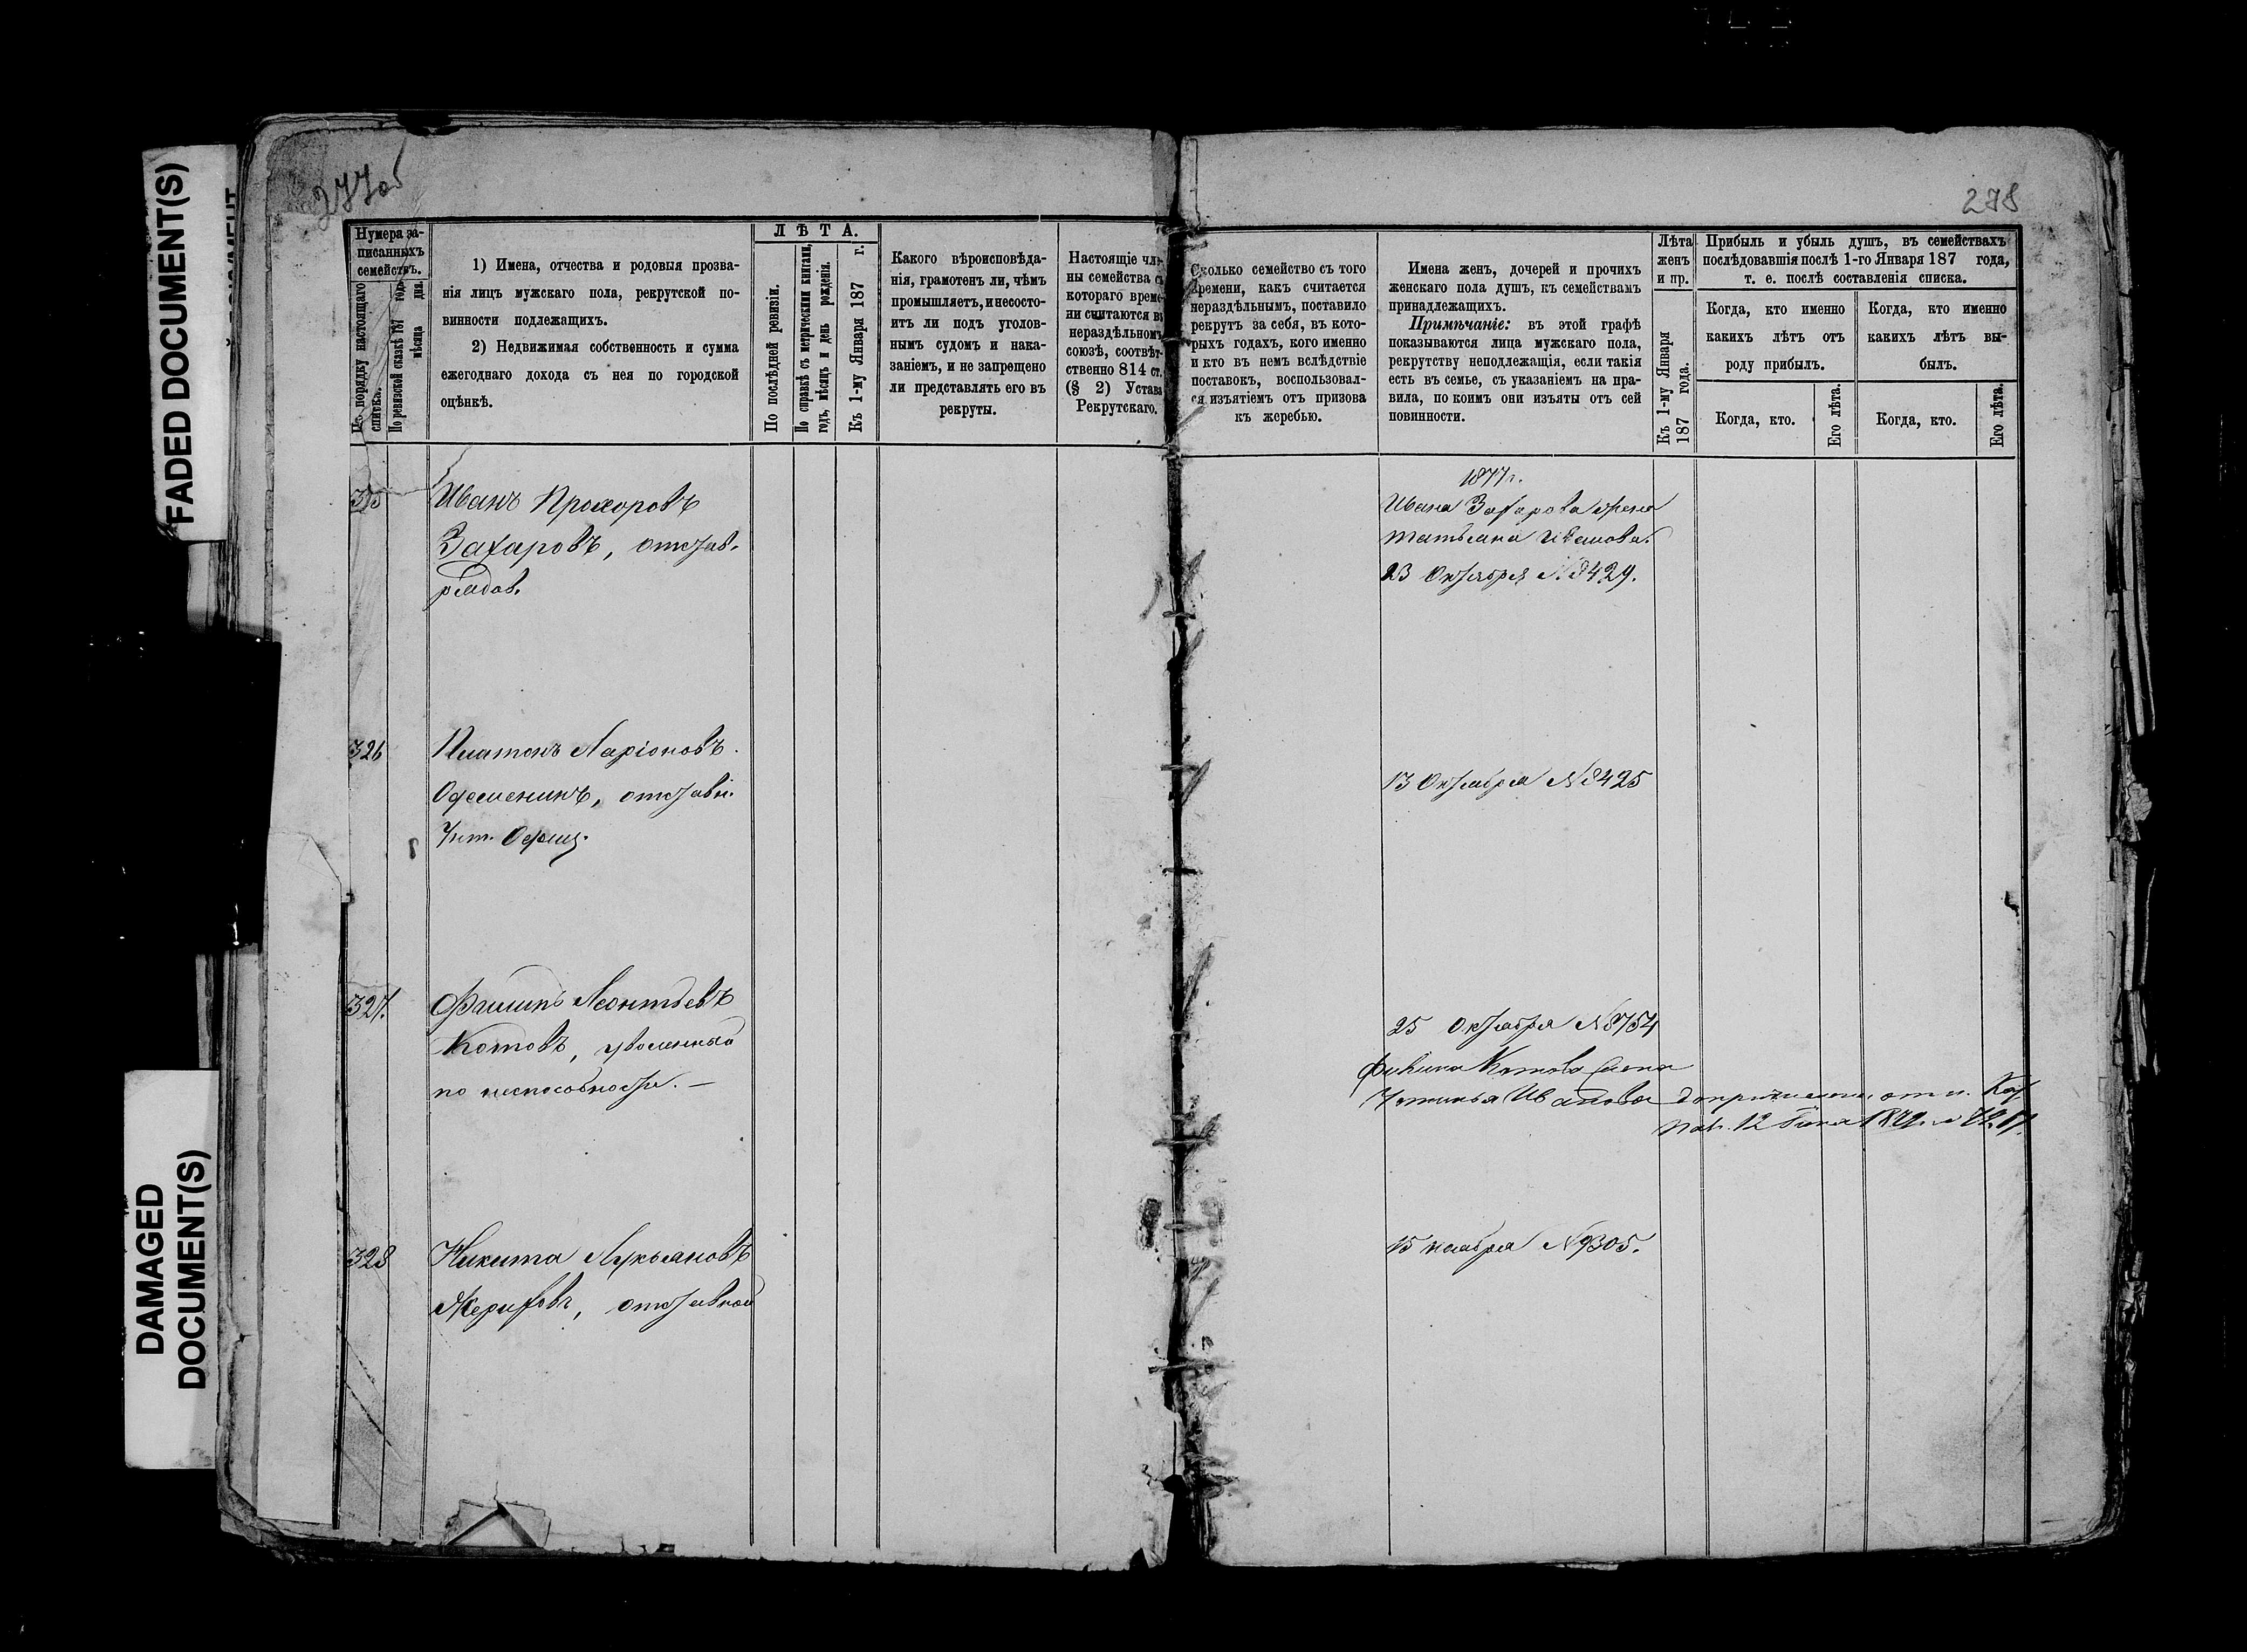 FADED DOCUMENT(S)
DAMAGED
DOCUMENT(S)
277об
278
Нумера за-
писанныхъ
семействъ.
По порядку настоящаго
списка.
По ревизской сказкѣ 187 года
мѣсяца дня.
1) Имена, отчества и родовыя прозва-
нія лицъ мужскаго пола, рекрутской по-
винности подлежащихъ.
2) Недвижимая собственность и сумма
ежегоднаго дохода съ нея по городской
оцѣнкѣ.
ЛѢТА.
По послѣдней ревизіи.
По справкѣ съ метрическими книгами,
годъ, мѣсяцъ и день рожденія.
Къ 1-му Января 187 г.
Какого вѣроисповѣда-
нія, грамотенъ ли, чѣмъ
промышляетъ, и несосто-
итъ ли подъ уголов-
нымъ судомъ и нака-
заніемъ, и не запрещено
ли представлять его въ
рекруты.
Настоящіе чле-
ны семейства съ
котораго време-
ни считаются въ
нераздѣльномъ
союзѣ, соотвѣт-
ственно 814 ст.
(§ 2) Устава
Рекрутскаго.
Сколько семейство съ того
времени, какъ считается
нераздѣльнымъ, поставило
рекрутъ за себя, въ кото-
рыхъ годахъ, кого именно
и кто въ немъ вслѣдствіе
поставокъ, воспользовал-
ся изъятіемъ отъ призова
къ жеребью.
Имена женъ, дочерей и прочихъ
женскаго пола душъ, къ семействамъ
принадлежащихъ.
Примѣчаніе: въ этой графѣ
показываются лица мужскаго пола,
рекрутству неподлежащія, если такія
есть въ семье, съ указаніемъ на пра-
вила, по коимъ они изъяты отъ сей
повинности.
Лѣта
женъ
и пр.
Къ 1-му Января
187 года.
Прибыль и убыль душъ, въ семействахъ
послѣдовавшія послѣ 1-го Января 187 года,
т. е. послѣ составленія списка.
Когда, кто именно
какихъ лѣтъ отъ
роду прибылъ.
Когда, кто именно
какихъ лѣтъ вы-
былъ.
Когда, кто.
Его лѣта.
Когда, кто.
Его лѣта.
325
Иванъ Прохоровъ
Захаровъ, отстав.
рядов.
1877 г.
Ивана Захарова жена
Татьяна Иванова.
23 Октября №8429.
326
Платонъ Ларіоновъ
отставн.
Унт. Офиц.
13 Октября №8425
327.
Филипъ Леонтьевъ
Котовъ, уволенный
по неспособности. —
25 Октября №8754
Филипа Котова жена
Устинья Иванова
12 1879
328
Никита Лукьяновъ
отставной
15 ноября №9305.